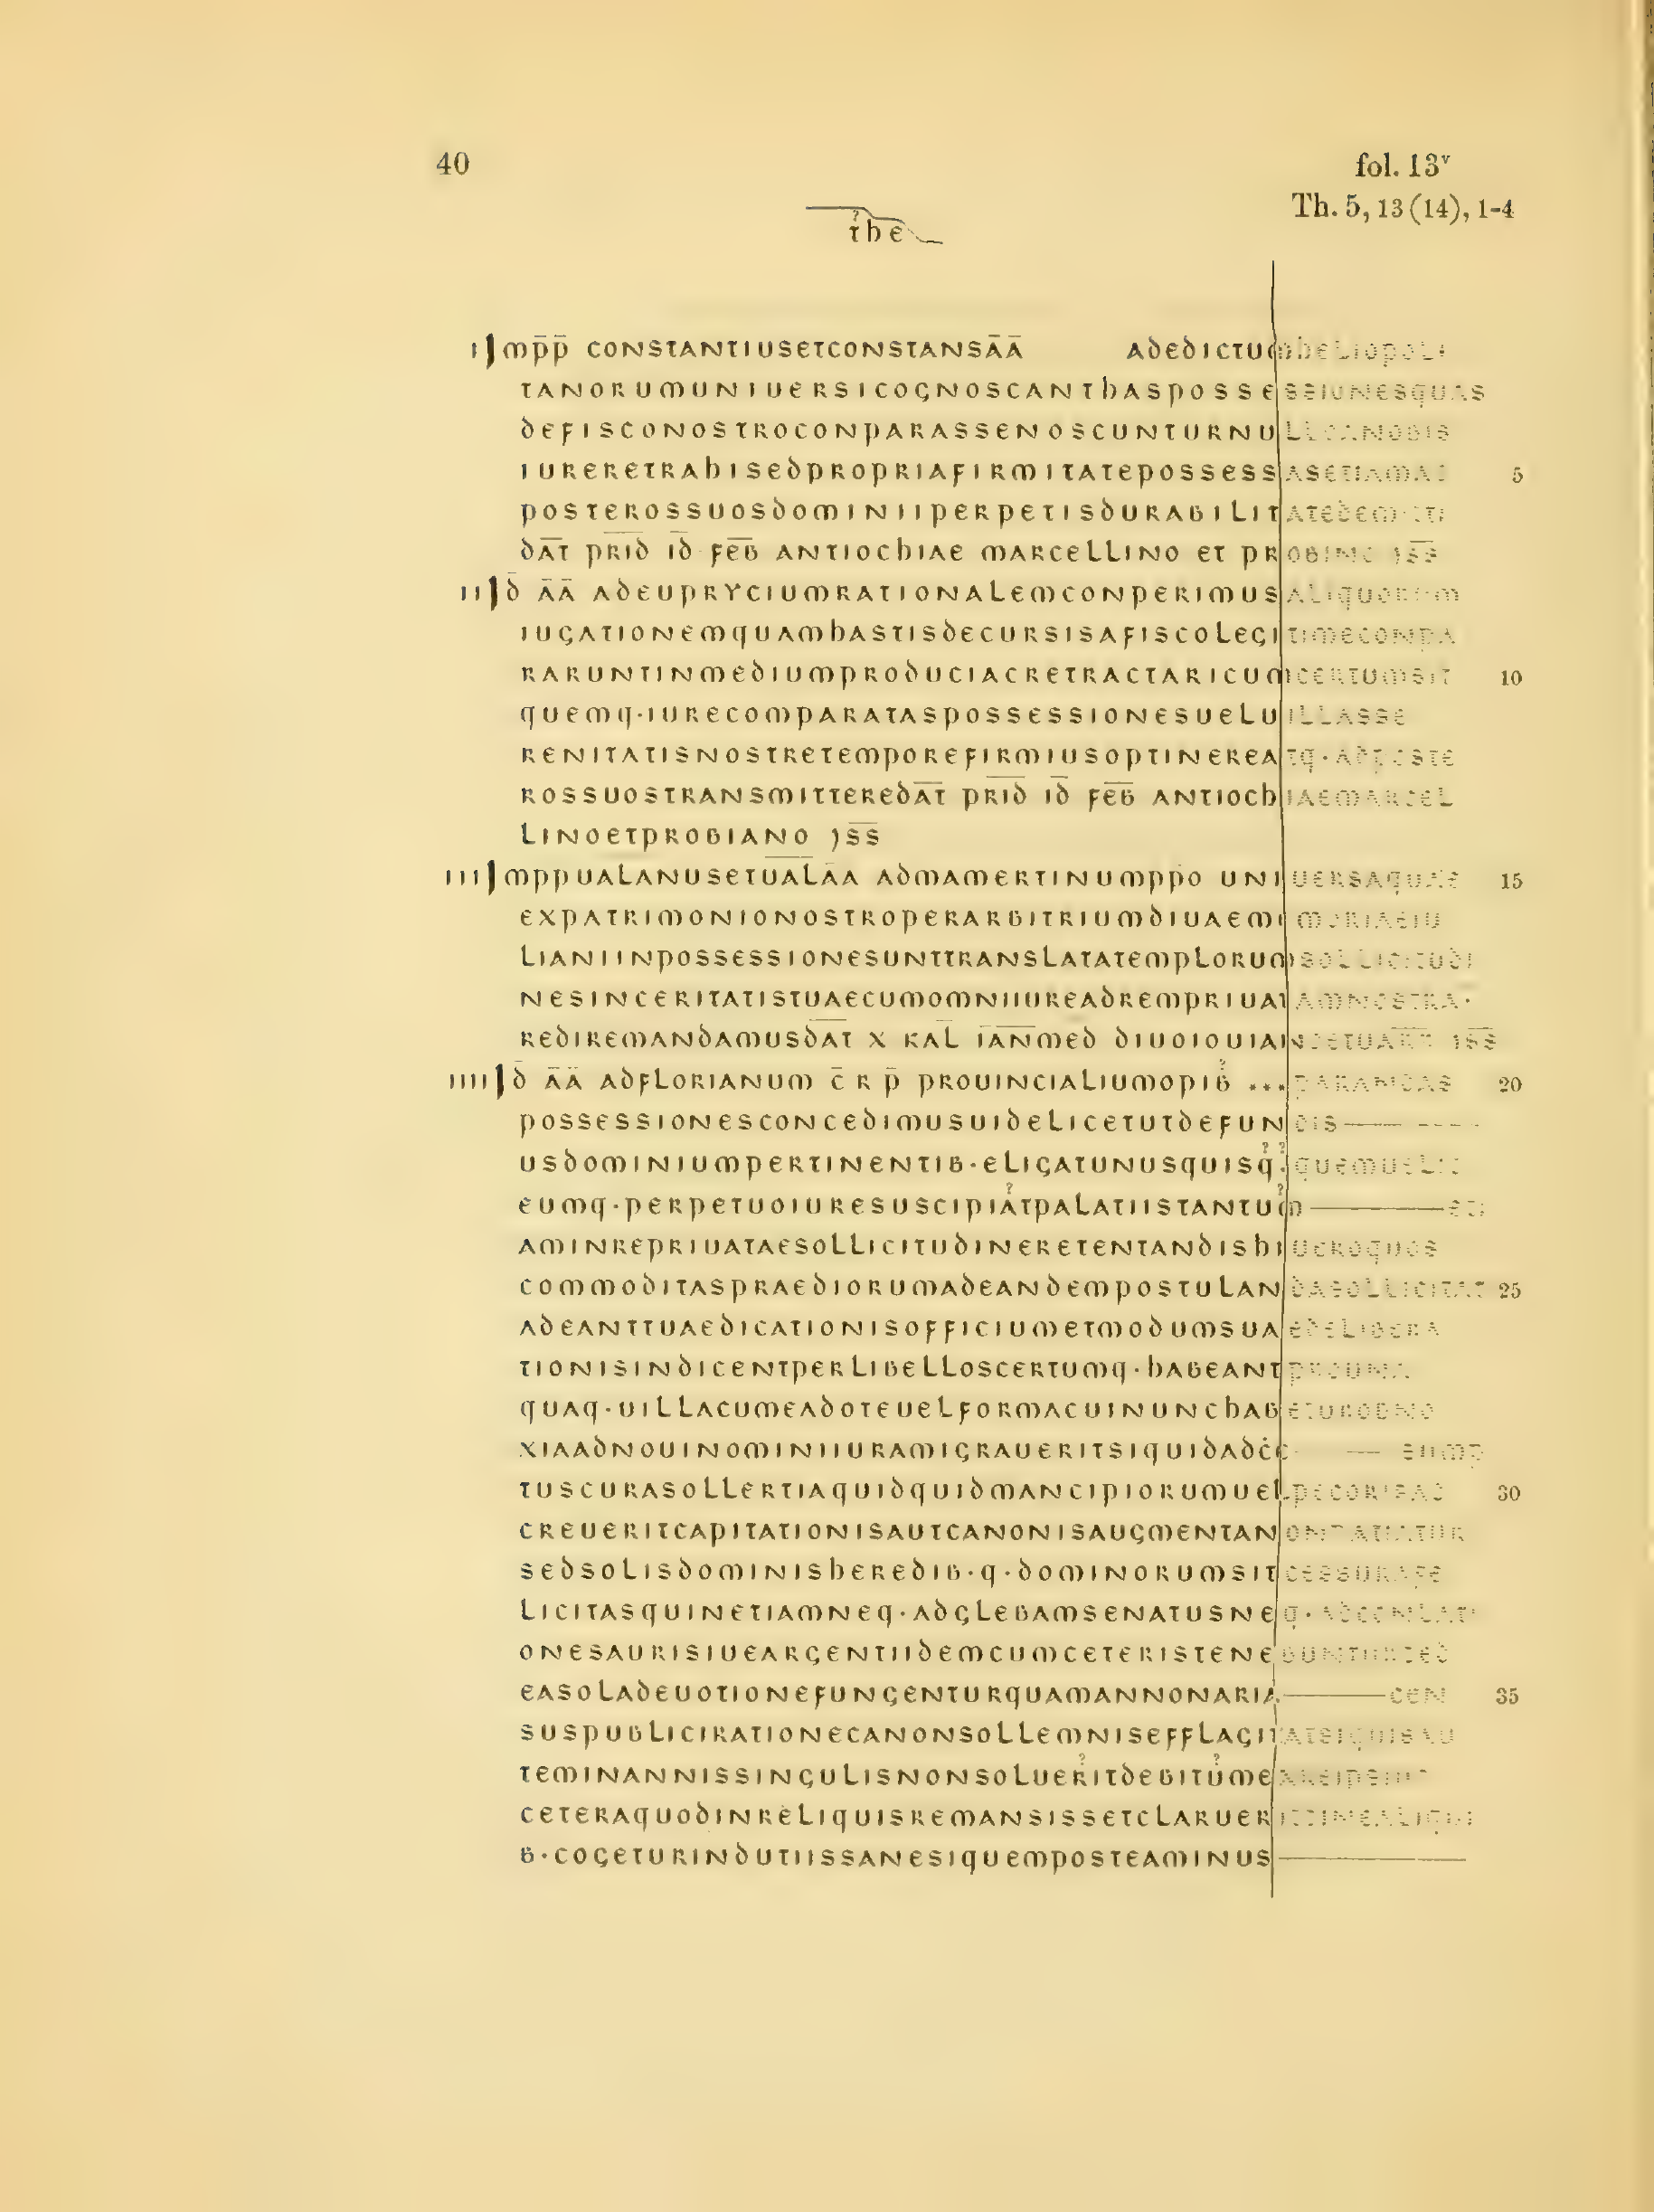 40
fol. 13ᵛ
Th. 5, 13 (14), 1-4
the
I Imp̄p̄ CONSTANTIUSETCONSTANSĀĀ ADEDICTUmhELIOPOLI
TANORUMUNIUERSICOGNOSCANTHASPOSSESSIONESQUAS
DEFISCONOSTROCONPARASSENOSCUNTURNULLOANOBIS
IURERETRAHISEDPROPRIAFIRMITATEPOSSESSASETIAMAD 5
POSTEROSSUOSDOMINIIPERPETISDURABILITATEDEMITTI
DĀT PRID ĪD FEB̄ ANTIOCHIAE MARCELLINO ET PROBINO )S̄S̄
II ID̄ ĀĀ ADEUPRYCIUMRATIONALEMCONPERIMUSALIQUORUM
IUGATIONEMQUAMHASTISDECURSISAFISCOLEGITIMECONPA
RARUNTINMEDIUMPRODUCIACRETRACTARICUMCERTUMSIT 10
QUEMQ·IURECOMPARATASPOSSESSIONESUELUILLASSE
RENITATISNOSTRETEMPOREFIRMIUSOPTINEREATQ·ADPOSTE
ROSSUOSTRANSMITTEREDĀT PRID ĪD FEB̄ ANTIOCHIAEMARCEL
LINOETPROBIANO )S̄S̄
III IMPPUALANUSETUALĀA ADMAMERTINUMPPO UNIUERSAQUAE 15
EXPATRIMONIONOSTROPERARBITRIUMDIUAEMEMORIAEIU
LIANIINPOSSESSIONESUNTTRANSLATATEMPLORUMSOLLICITUDI
NESINCERITATISTUAECUMOMNIIUREADREMPRIUATAMNOSTRA·
REDIREMANDAMUSDĀT X KAL̄ ĪANMED DIUOIOUIANOETUARR )S̄S̄
IIII ID̄ ĀĀ ADFLORIANUM C̄ R P̄ PROUINCIALIUMOPIB ...PARANDAS 20
POSSESSIONESCONCEDIMUSUIDELICETUTDEFUNDIS
USDOMINIUMPERTINENTIB·ELIGATUNUSQUISQ·QUEMUELIT
EUMQ·PERPETUOIURESUSCIPIATPALATIISTANTUM ET
AMINREPRIUATAESOLLICITUDINERETENTANDISHIUEROQUOS
COMMODITASPRAEDIORUMADEANDEMPOSTULANDASOLLICITAT 25
ADEANTTUAEDICATIONISOFFICIUMETMODUMSUAEDELIBERA
TIONISINDICENTPERLIBELLOSCERTUMQ·HABEANT
QUAQ·UILLACUMEADOTEUELFORMACUINUNCHABETUROBNO
XIAADNOUINOMINIIURAMIGRAUERITSIQUIDAD EIIMP
TUSCURASOLLERTIAQUIDQUIDMANCIPIORUMUELPECORISAC 30
CREUERITCAPITATIONISAUTCANONISAUGMENTANONPATIATUR
SEDSOLISDOMINISHEREDIB·Q·DOMINORUMSITCESSURAFE
LICITASQUINETIAMNEQ·ADGLEBAMSENATUSNEQ·ADCONLATI
ONESAURISIUEARGENTIIDEMCUMCETERISTENEBUNTURSED
EASOLADEUOTIONEFUNGENTURQUAMANNONARIA CEN 35
SUSPUBLICIRATIONECANONSOLLEMNISEFFLAGITATSIQUISAU
TEMINANNISSINGULISNONSOLUERITDEBITUME
CETERAQUODINRELIQUISREMANSISSETCLARUERIT
B·COGETURINDUTIISSANESIQUEMPOSTEAMINUS